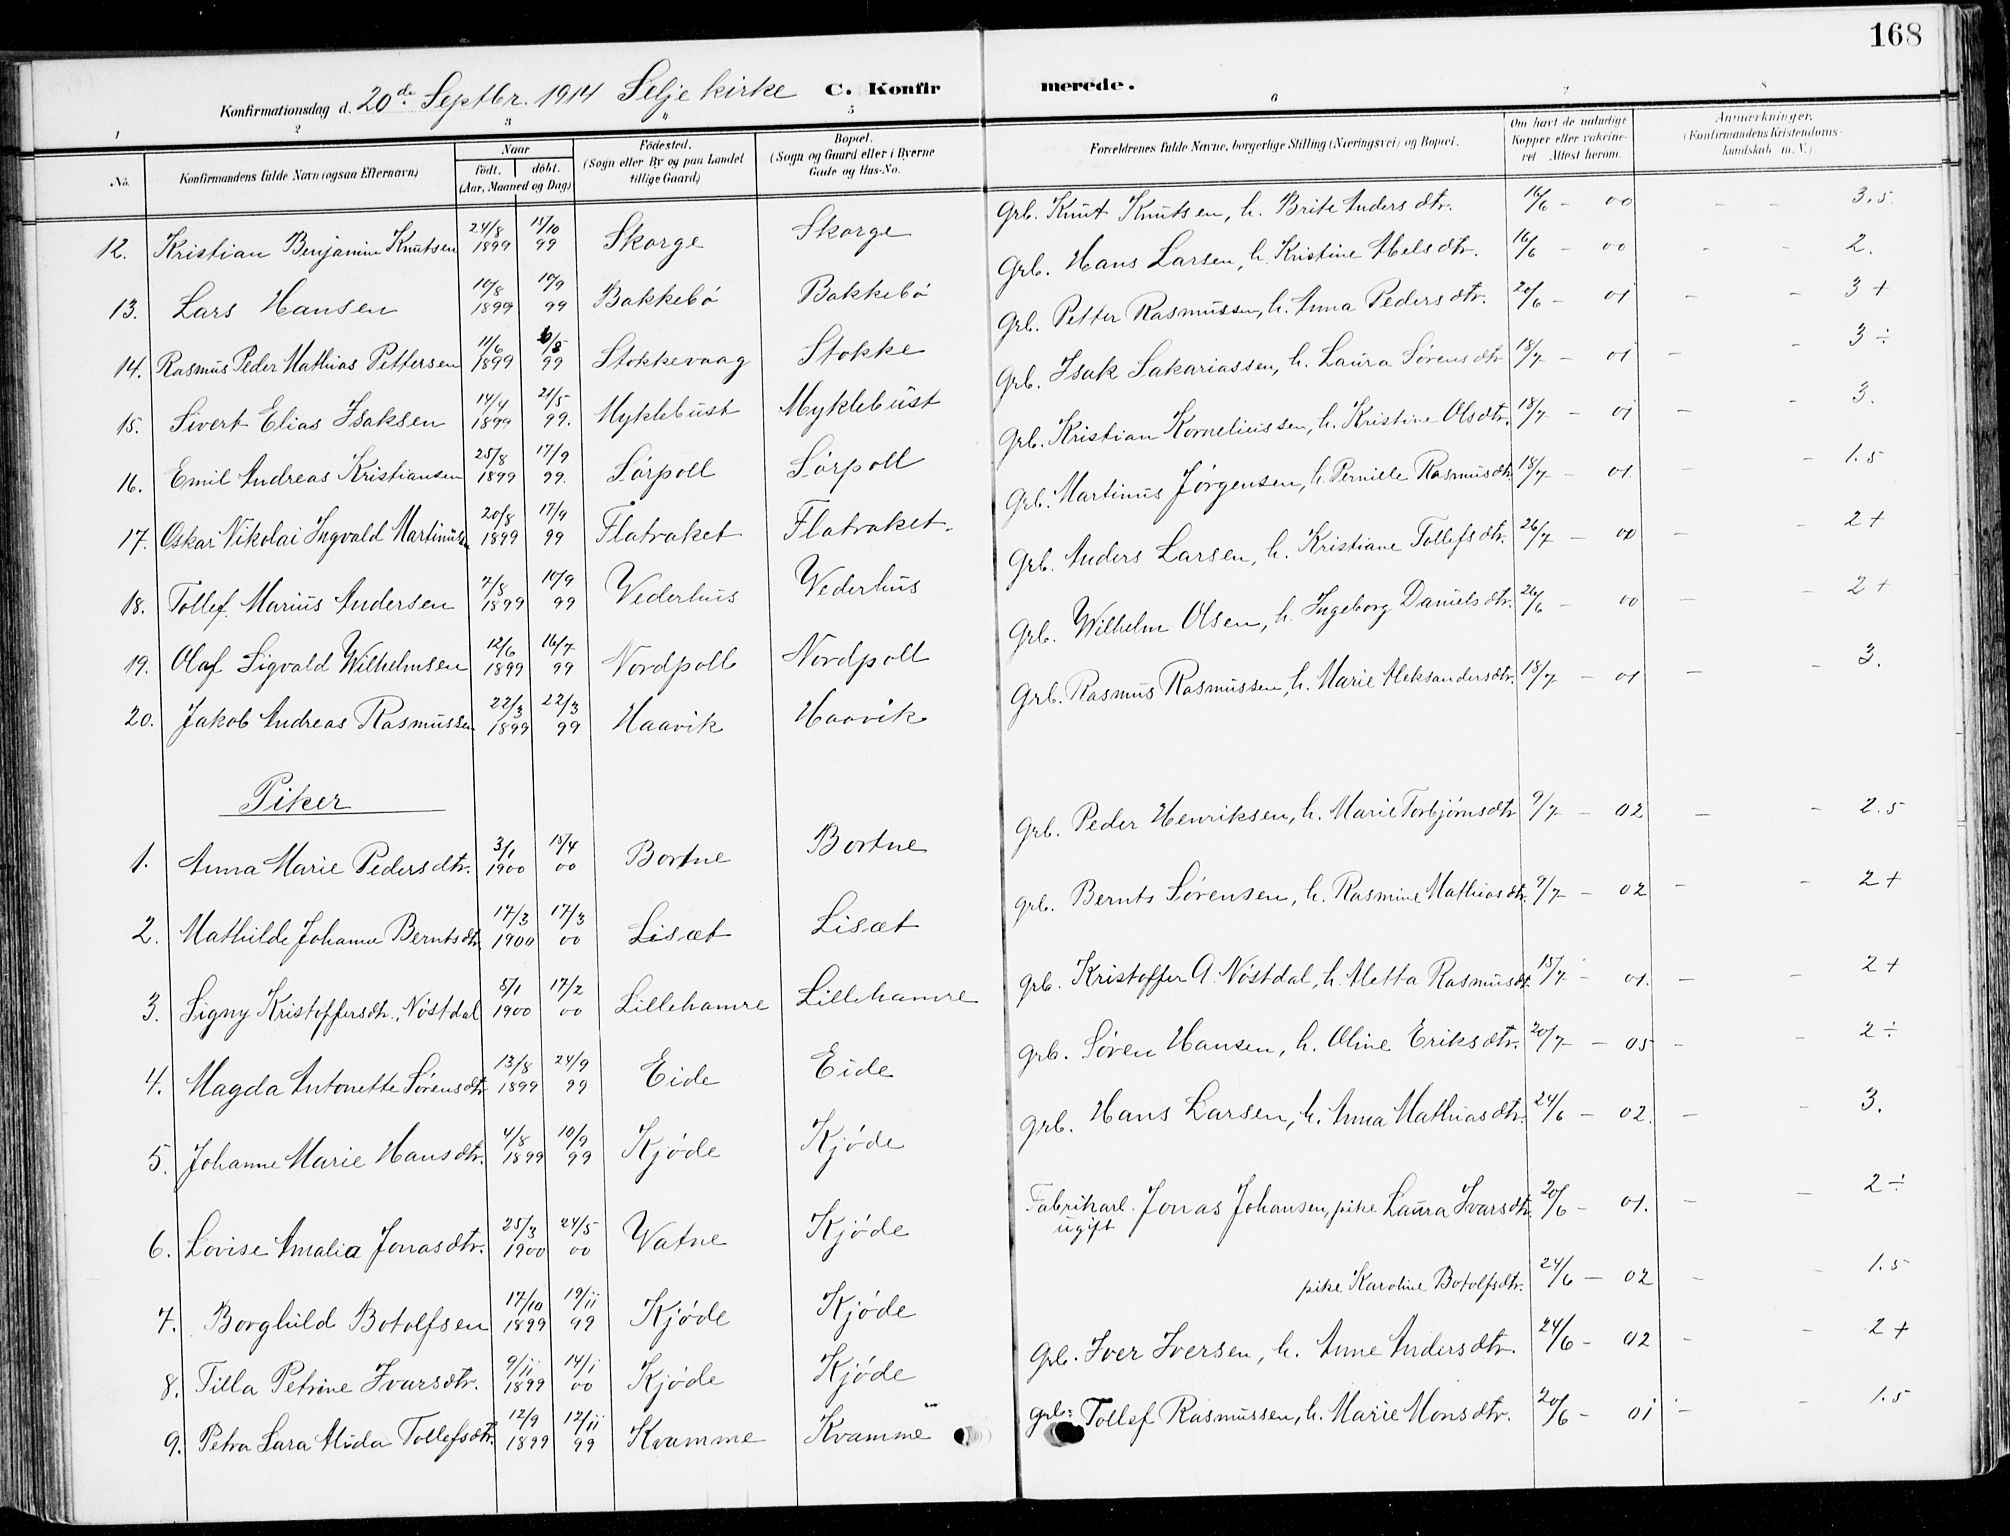 168
Konfirmationsdag d. 20de Septbr. 1914 Selje kirke C. Konfirmerede.
1 2 3 4 5 6 7 8
No. Konfirmandens fulde Navn (ogsaa Efternavn) Naar født. døbt. (Aar, Maaned og Dag) Fødested. (Sogn eller By og paa Landet tillige Gaard) Bopæl. (Sogn og Gaard eller i Byerne Gade og Hus-No. Forældrenes fulde Navne, borgerlige Stilling (Næringsvei) og Bopæl. Om havt de naturlige Kopper eller vakcineret Attest herom. Anmærkninger. (Konfirmandens Kristendomskundskab m. V.)
12. Kristian Benjamin Knutsen 24/8 1899 15/10 99 Skorge Skorge Grb. Knut Knutsen, h. Brite Andersdtr. 16/6 - 00 - - 3.5
13. Lars Hansen 10/8 1899 10/9 99 Bakkebø Bakkebø Grb. Hans Larsen, h. Kristine Abelsdtr. 16/6 - 00 - - 2.
14. Rasmus Peder Mathias Pettersen 11/6 1899 99 Stokkevaag Stokke Grb. Petter Rasmussen, h. Anna Pedersdtr. 20/6 - 01 - - 3+
15. Sivert Elias Isaksen 14/4 1899 21/5 99. Myklebust Myklebust Grb. Isak Sakariassen, h. Laura Sørensdtr 18/7 - 01 - - 3÷
16. Emil Andreas Kristiansen 25/8 1899 17/9 99. Sørpoll Sørpoll Grb. Kristian Korneliussen, h. Kristine Olsdtr. 18/7 - 01 - - 3.
17. Oskar Nikolai Ingvald Martinussen 20/8 1899 17/9 99 Flatraket Flatraket. Grb. Martinus Jørgensen, h. Pernille Rasmusdtr. 18/7 - 01. - - 1.5
18. Tollef Marius Andersen 7/8 1899 10/9 99 Vederhus Vederhus Grb. Anders Larsen, h. Kristiane Tollefsdtr. 26/7 - 00 - - 2+
19. Olaf Sigvald Wilhelmsen 12/6 1899 16/7 99 Nordpoll Nordpoll Grb. Wilhelm Olsen, h. Ingeborg Danielsdtr. 26/6 - 00 - - 2+
20. Jakob Andreas Rasmussen 22/3 1899 22/3 99 Haavik Haavik Grb. Rasmus Rasmussen, h. Marie Aleksandersdtr. 18/7 - 01 - - 3.
Piker
1. Anna Marie Pedersdtr. 3/1 1900 15/4 00 Bortne Bortne Grb. Peder Henriksen, h. Marie Torbjørnsdtr 9/7 - 02 - - 2.5
2. Mathilde Johanne Berntsdtr. 17/3 1900 17/3 00 Lisæt Lisæt Grb. Bernts Sørensen, h. Rasmine Mathiasdtr. 9/7 - 02 - - 2+
3. Signy Kristoffersdtr. Nøstdal 5/1 1900 17/2 00 Lillehamre Lillehamre Grb. Kristoffer A. Nøstdal, h. Aletta Rasmusdt. 15/7 - 01. - - 2+
4. Magda Antonette Sørensdtr 13/8 1899 24/9 99 Eide Eide Grb. Søren Hansen, h. Oline Eriksdtr. 20/7 - 05 - - 2÷
5. Johanne Marie Hansdtr. 4/8 1899 10/9 99 Kjøde Kjøde Grb. Hans Larsen, h. Anna Mathiasdtr. 24/6 - 02. - - 3.
6. Lovise Amalia Jonasdtr. 25/3 1900 24/5 00 Vatne Kjøde Fabrikarb. ugift Jonas Johansen, pike Laura Ivarsdtr. 20/6 - 01. - - 2÷
7. Borghild Botolfsen 17/10 1899 19/11 99 Kjøde Kjøde pike Karoline Botolfsdtr. 24/6 - 02 - - 1.5
8. Tilla Petrine Ivarsdtr. 9/11 1899 14/1 00 Kjøde Kjøde Grb. Iver Iversen, h. Anne Andersdtr. 24/6 - 02 - - 2+
9. Petra Lara Alida Tollefsdtr. 12/9 1899 12/11 99 Kvamme Kvamme Grb. Tollef Rasmussen, h. Marie Monsdtr. 20/6 - 01 - - 1.5